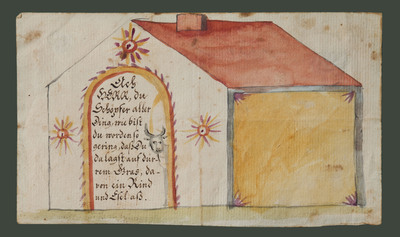 Ach
HERR, du
Schöpfer aller
Ding, wie bist
du worden so
gering, daß Du
da lagst auf dür-
rem Gras, da-
von ein Rind
und Esel aß.